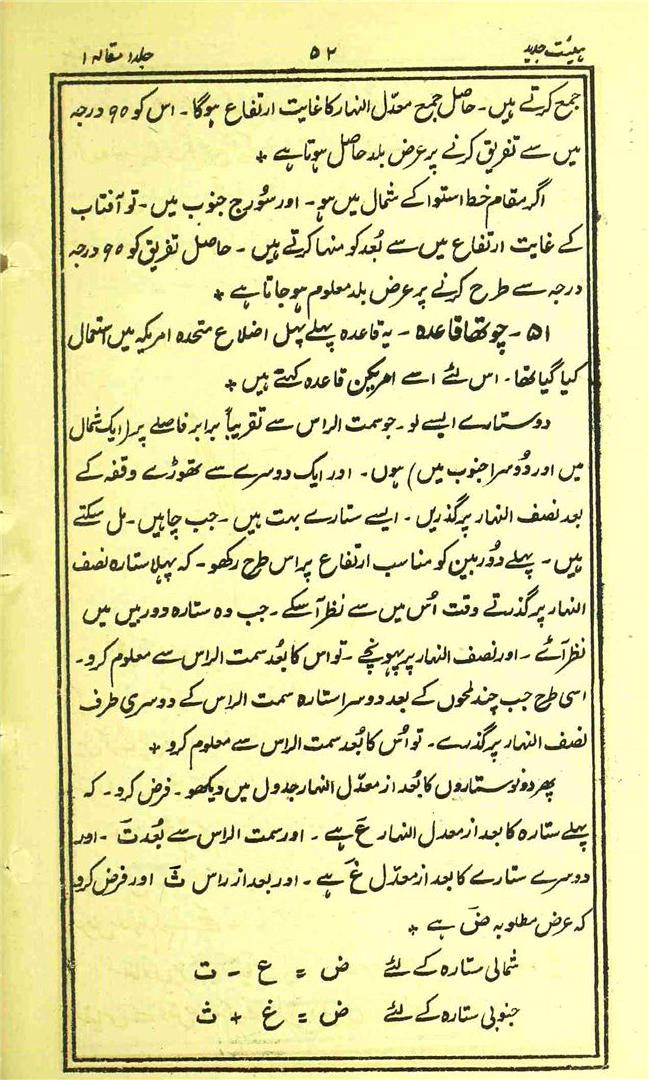 ہیئت جدید ۵۲ جلد۱ مقالہ۱
جمع کرتے ہیں۔ حاصل جمع معدّل النہار کا غایت ارتفاع ہوگا۔ اس کو ۹۰ درجہ
میں سے تفریق کرنے پر عرض بلد حاصل ہوتا ہے +
اگر مقام خط استوا کے شمال میں ہو۔ اور سُورج جنوب میں۔ تو آفتاب
کے غایت ارتفاع میں سے بُعد کو منہا کرتے ہیں۔ حاصل تفریق کو ۹۰ درجہ
درجہ سے طرح کرنے پر عرض بلد معلوم ہو جاتا ہے +
۵۱۔ چوتھا قاعدہ۔ یہ قاعدہ پہلے پہل اضلاع متحدہ امریکہ میں استعمال
کیا گیا تھا۔ اس لئے اسے امریکن قاعدہ کہتے ہیں +
دو ستارے ایسے لو۔ جو سمت الراس سے تقریباً برابر فاصلے پر (ایک شمال
میں اور دُوسرا جنوب میں) ہوں۔ اور ایک دوسرے سے تھوڑے وقفہ کے
بعد نصف النہار پر گذریں۔ ایسے ستارے بہت ہیں۔ جب چاہیں۔ مل سکتے
ہیں۔ پہلے دُوربین کو مناسب ارتفاع پر اس طرح رکھو۔ کہ پہلا ستارہ نصف
النہار پر گذرتے وقت اُس میں سے نظر آ سکے۔ جب وہ ستارہ دوربیں میں
نظر آئے۔ اور نصف النہار پر پہونچے۔ تو اس کا بُعد سمت الراس سے معلوم کرو۔
اسی طرح جب چند لمحوں کے بعد دوسرا ستارہ سمت الراس کے دوسری طرف
نصف النہار پر گذرے۔ تو اُس کا بُعد سمت الراس سے معلوم کرو +
پھر دونو ستاروں کا بُعد از معدّل النہار جدول میں دیکھو۔ فرض کرو۔ کہ
پہلے ستارہ کا بعد از معدل النہار عَ ہے۔ اور سمت الراس سے بُعد تَ۔ اور
دوسرے ستارے کا بعد از معدّل غَ ہے۔ اور بعد از راس ثَ اور فرض کرو
کہ عرض مطلوبہ ضَ ہے +
شمالی ستارہ کے لئے ض = ع - ت
جنوبی ستارہ کے لئے ض = غ + ث